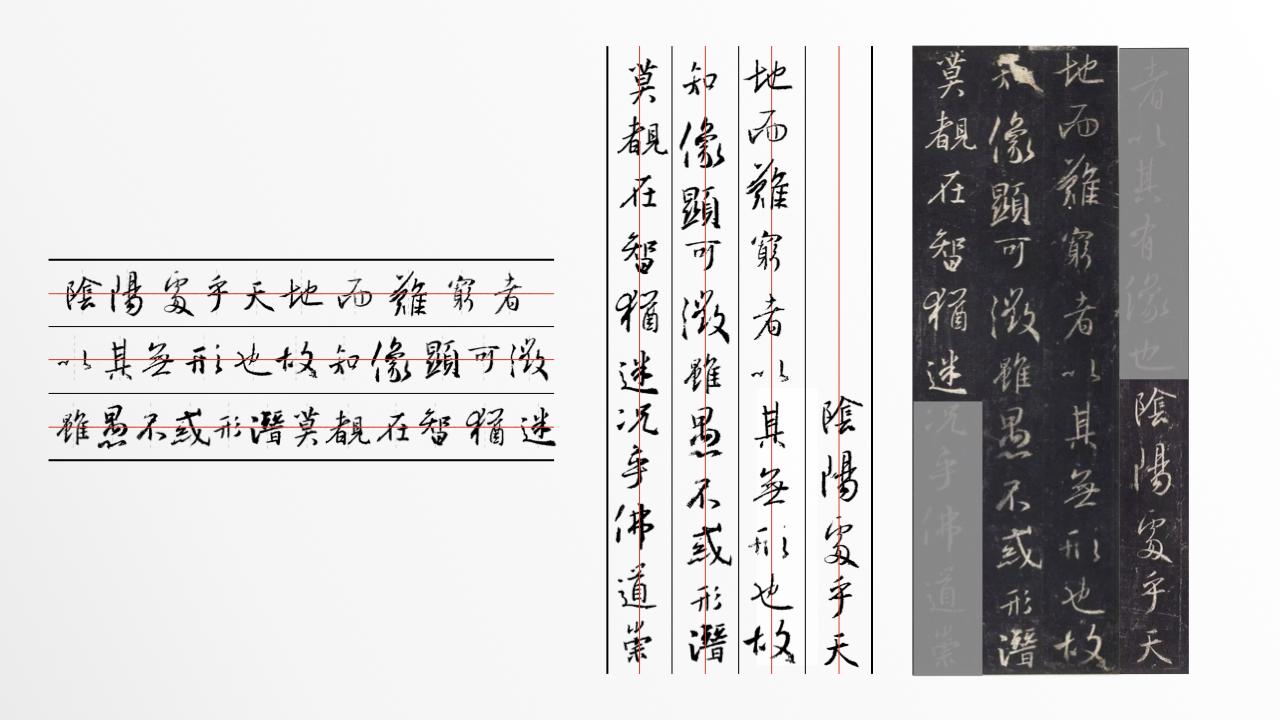 陰陽處乎天地而難窮者
以其無形也故知像顯可徵
雖愚不惑形潛莫覩在智猶迷
陰陽處乎天
地而難窮者以其無形也故
知像顯可徵雖愚不惑形潛
莫覩在智猶迷況乎佛道崇
者以其有像也陰陽處乎天
地而難窮者以其無形也故
知像顯可徵雖愚不惑形潛
莫覩在智猶迷況乎佛道崇